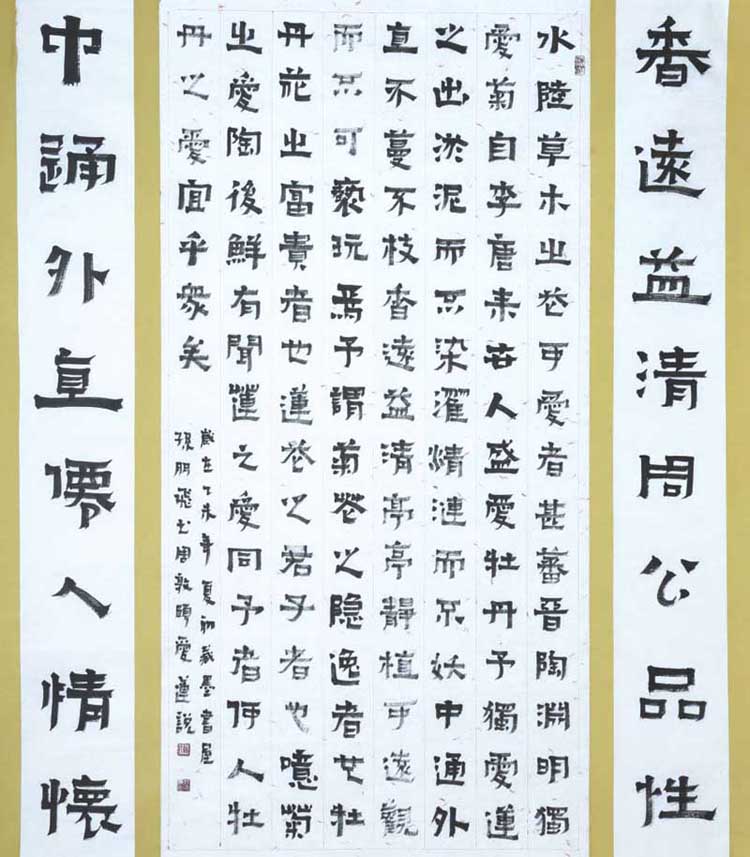 香遠益清周公品性
水陸草木之花可愛者甚蕃晉陶淵明獨
愛菊自李唐来世人盛愛牡丹予獨愛蓮
之出淤泥而不染濯清漣而不妖中通外
直不蔓不枝香遠益清亭亭靜植可遠觀
而不可褻玩焉予謂菊花之隱逸者也牡
丹花之富貴者也蓮花之君子者也噫菊
之愛陶後鮮有聞蓮之愛同予者何人牡
丹之愛宜乎眾矣
歲在乙未年夏初藏墨書屋
朋飛书周敦頤愛蓮說
中通外直僊人情懷